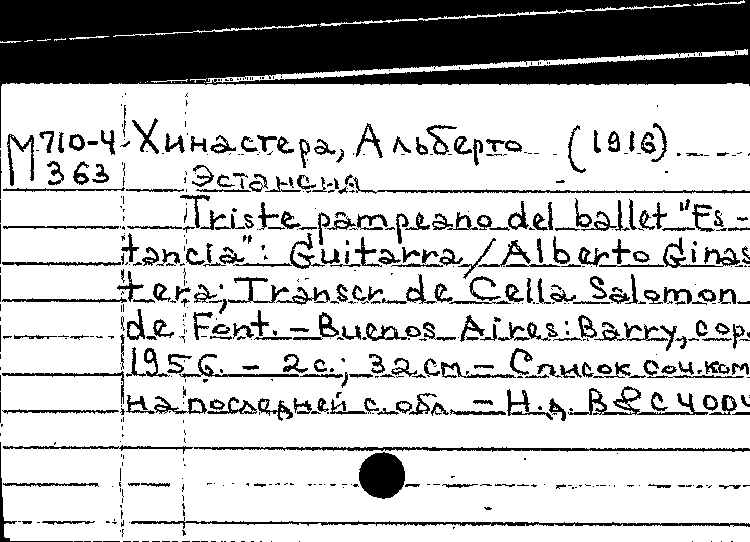 М 710-4 Хинастера, Альберто (1916)
363 Эстансия
Triste pampeano del ballet "Es-
tancia": Guitarra / Alberto Ginas
tera; Transcr. de Cella Salomon
de Font. – Buenos Aires: Barry, cop.
1956. – 2 с.; 32 см. – Список соч. ком
на последней с. обл. – Н.д. B & C 4004